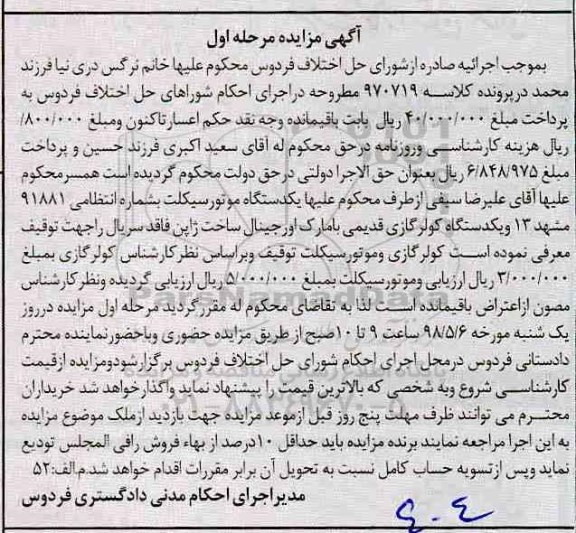 آگهی مزایده مرحله اول
بموجب اجرائیه صادره ازشورای حل اختلاف فردوس محکوم علیها خانم نرگس دری نیا فرزند
محمد درپرونده کلاسه ۹۷۰۷۱۹ مطروحه دراجرای احکام شوراهای حل اختلاف فردوس به
پرداخت مبلغ ۴۰/۰۰۰/۰۰۰ ریال بابت باقیمانده وجه نقد حکم اعسارتاکنون ومبلغ ۸۰۰/۰۰۰/
ریال هزینه کارشناسی وروزنامه درحق محکوم له آقای سعید اکبری فرزند حسین و پرداخت
مبلغ ۶/۸۴۸/۹۷۵ ریال بعنوان حق الاجرا دولتی درحق دولت محکوم گردیده است همسرمحکوم
علیها آقای علیرضا سیفی ازطرف محکوم علیها یکدستگاه موتورسیکلت بشماره انتظامی ۹۱۸۸۱
مشهد ۱۳ ویکدستگاه کولرگازی قدیمی بامارک اورجینال ساخت ژاپن فاقد سریال راجهت توقیف
معرفی نموده است کولرگازی وموتورسیکلت توقیف وبراساس نظرکارشناس کولرگازی بمبلغ
۳/۰۰۰/۰۰۰ ریال ارزیابی وموتورسیکلت بمبلغ ۵/۰۰۰/۰۰۰ ریال ارزیابی گردیده ونظرکارشناس
مصون ازاعتراض باقیمانده است لذا به تقاضای محکوم له مقررگردید مرحله اول مزایده درروز
یک شنبه مورخه ۹۸/۵/۶ ساعت ۹ تا ۱۰صبح از طریق مزایده حضوری وباحضورنماینده محترم
دادستانی فردوس درمحل اجرای احکام شورای حل اختلاف فردوس برگزارشودومزایده ازقیمت
کارشناسی شروع وبه شخصی که بالاترین قیمت را پیشنهاد نماید واگذارخواهد شد خریداران
محترم می توانند ظرف مهلت پنج روز قبل ازموعد مزایده جهت بازدید ازملک موضوع مزایده
به این اجرا مراجعه نمایند برنده مزایده باید حداقل ۱۰درصد از بهاء فروش رافی المجلس تودیع
نماید وپس ازتسویه حساب کامل نسبت به تحویل آن برابر مقررات اقدام خواهد شد.م.الف:۵۲
مدیراجرای احکام مدنی دادگستری فردوس
۴۰۴
ParsNamadData